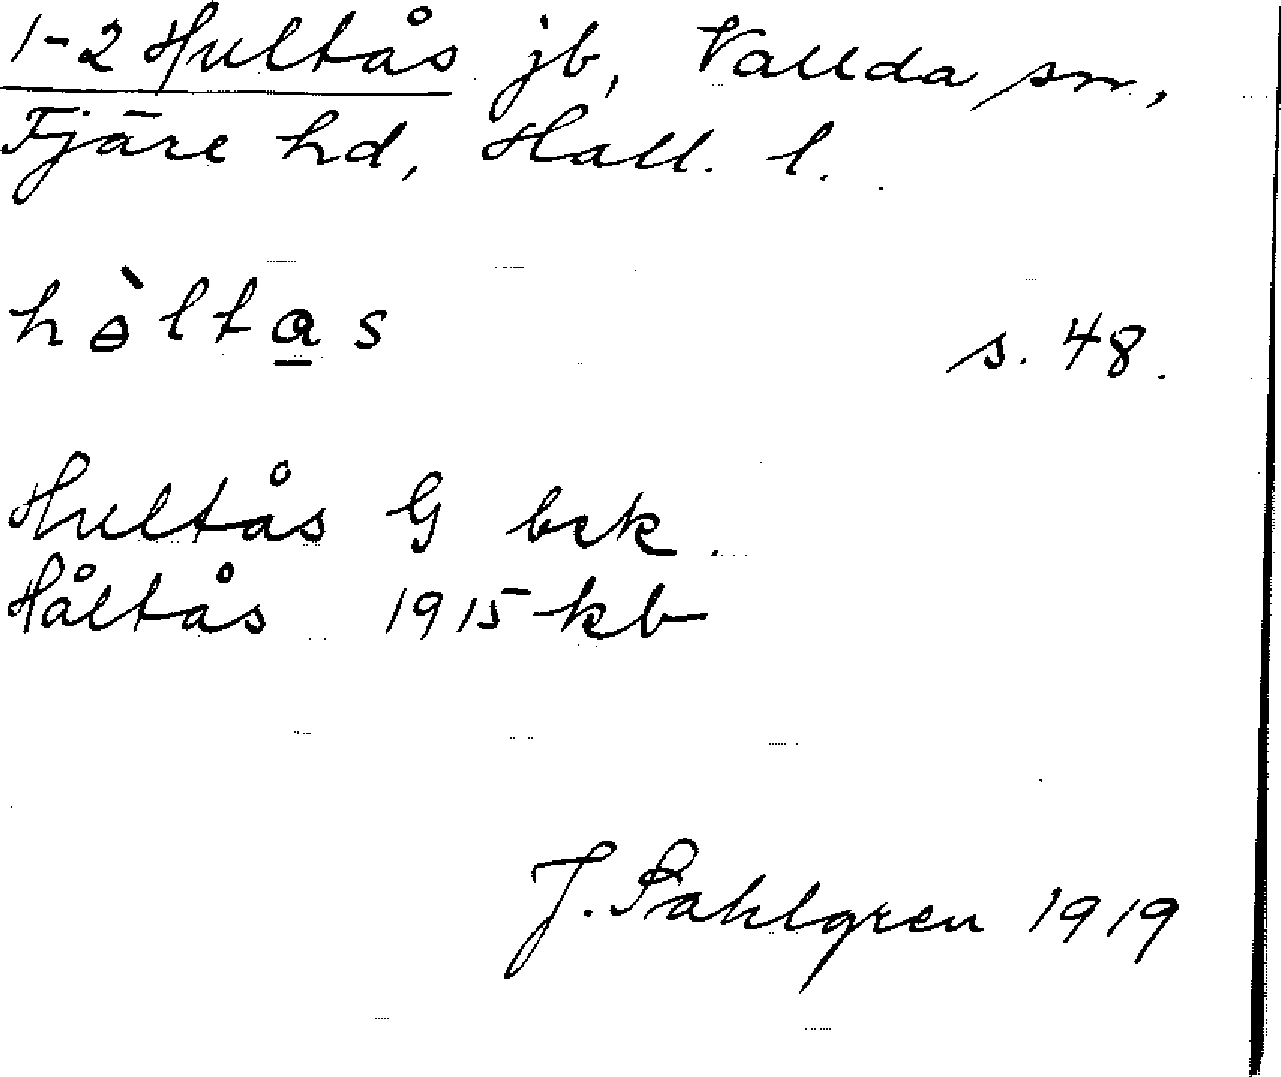 1-2 Hultås jb, Vallda sn,
Fjäre hd, Hall. l.
hòltas s. 48.
Hultås G bek.
Håltås 1915 kb
J. Sahlgren 1919